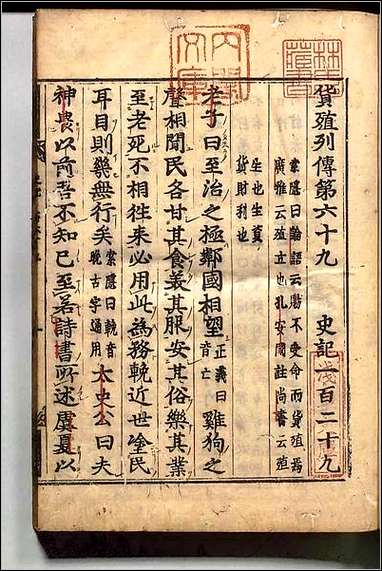 貨殖列傳第六十九 史記一百二十九
索隱曰論語云賜不受命而貨殖焉
廣雅云殖立也孔安國註尚書云殖
生也生資
貨財利也
老子曰至治之極鄰國相望正義曰音亡雞狗之
聲相聞民各甘其食美其服安其俗樂其業
至老死不相往来必用此為務輓近世塗民
耳目則幾無行矣索隱曰輓音晚古字通用太史公曰夫
神農以前吾不知已至若詩書所述虞夏以
內閣
文庫
林氏
藏書